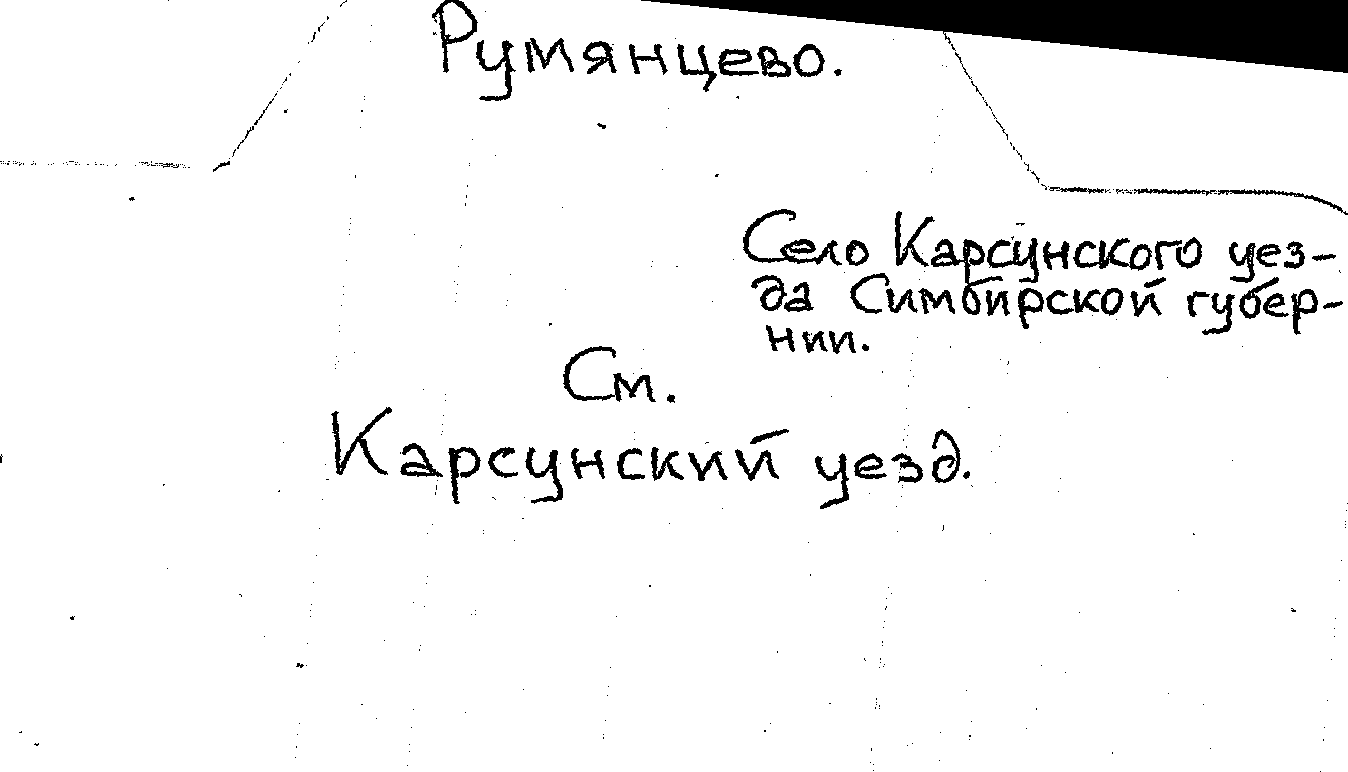 Румянцево.
Село Карсунского уез-
да Симбирской губер-
нии.
См.
Карсунский уезд.